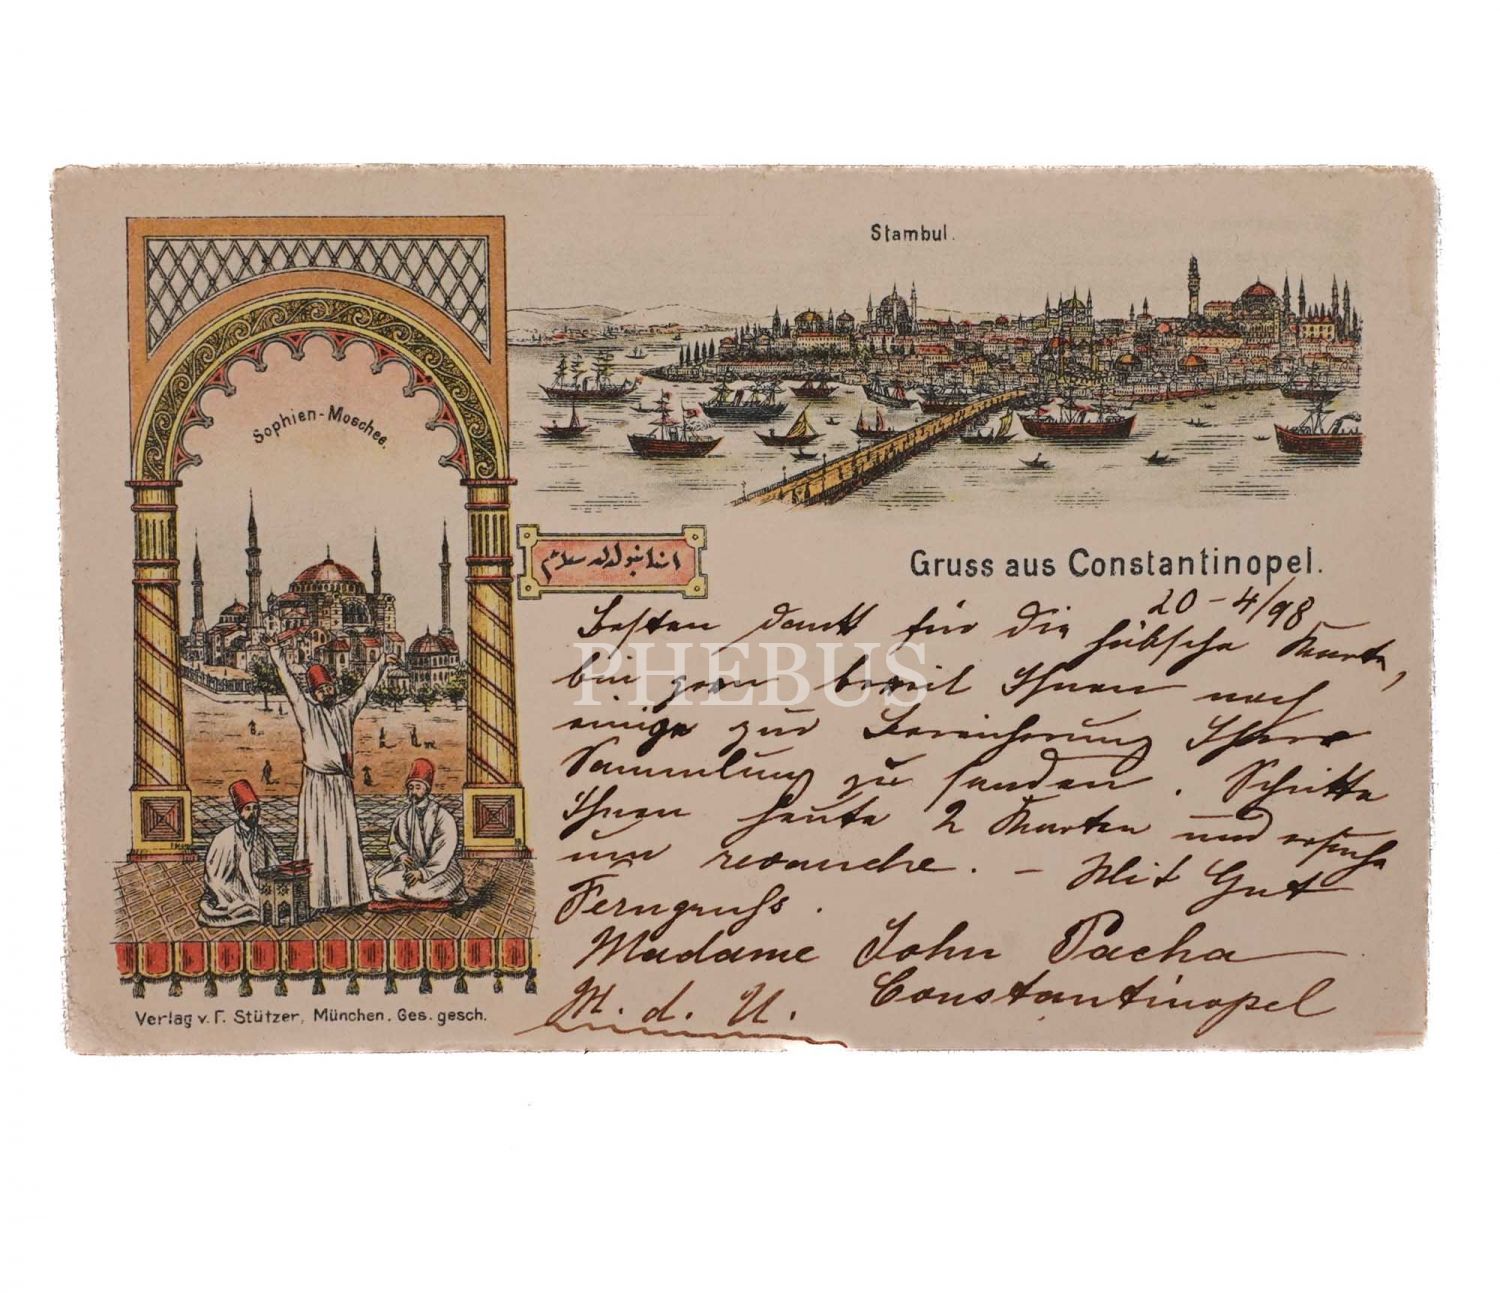 Stambul.
Sophien-Moschee.
استانبولدن سلام
Gruss aus Constantinopel.
20-4/98
Besten Dank für die hübsche Karte,
bin gern bereit Ihnen noch
einige zur Bereicherung Ihrer
Sammlung zu senden. Schikte
Ihnen heute 2 Karten und ersuche
um revanche. - Mit Gut
Ferngruß.
Madame John Pacha
Constantinopel
M. d. U.
Verlag v. F. Stützer, München. Ges. gesch.
PHEBUS